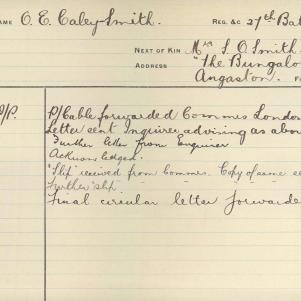 NAME O. E. Caley-Smith. REG. &C 27th Bat
NEXT OF KIN Mrs S. O Smith
ADDRESS "The Bungalo
Angaston.
P/Cable forwarded Commrs London
Letter sent Inquirer advising as abov
Further letter from Enquirer
Acknowledged.
"Slip" received from Commrs. Copy of same se
Further slip " " " "
Final circular letter forwarde